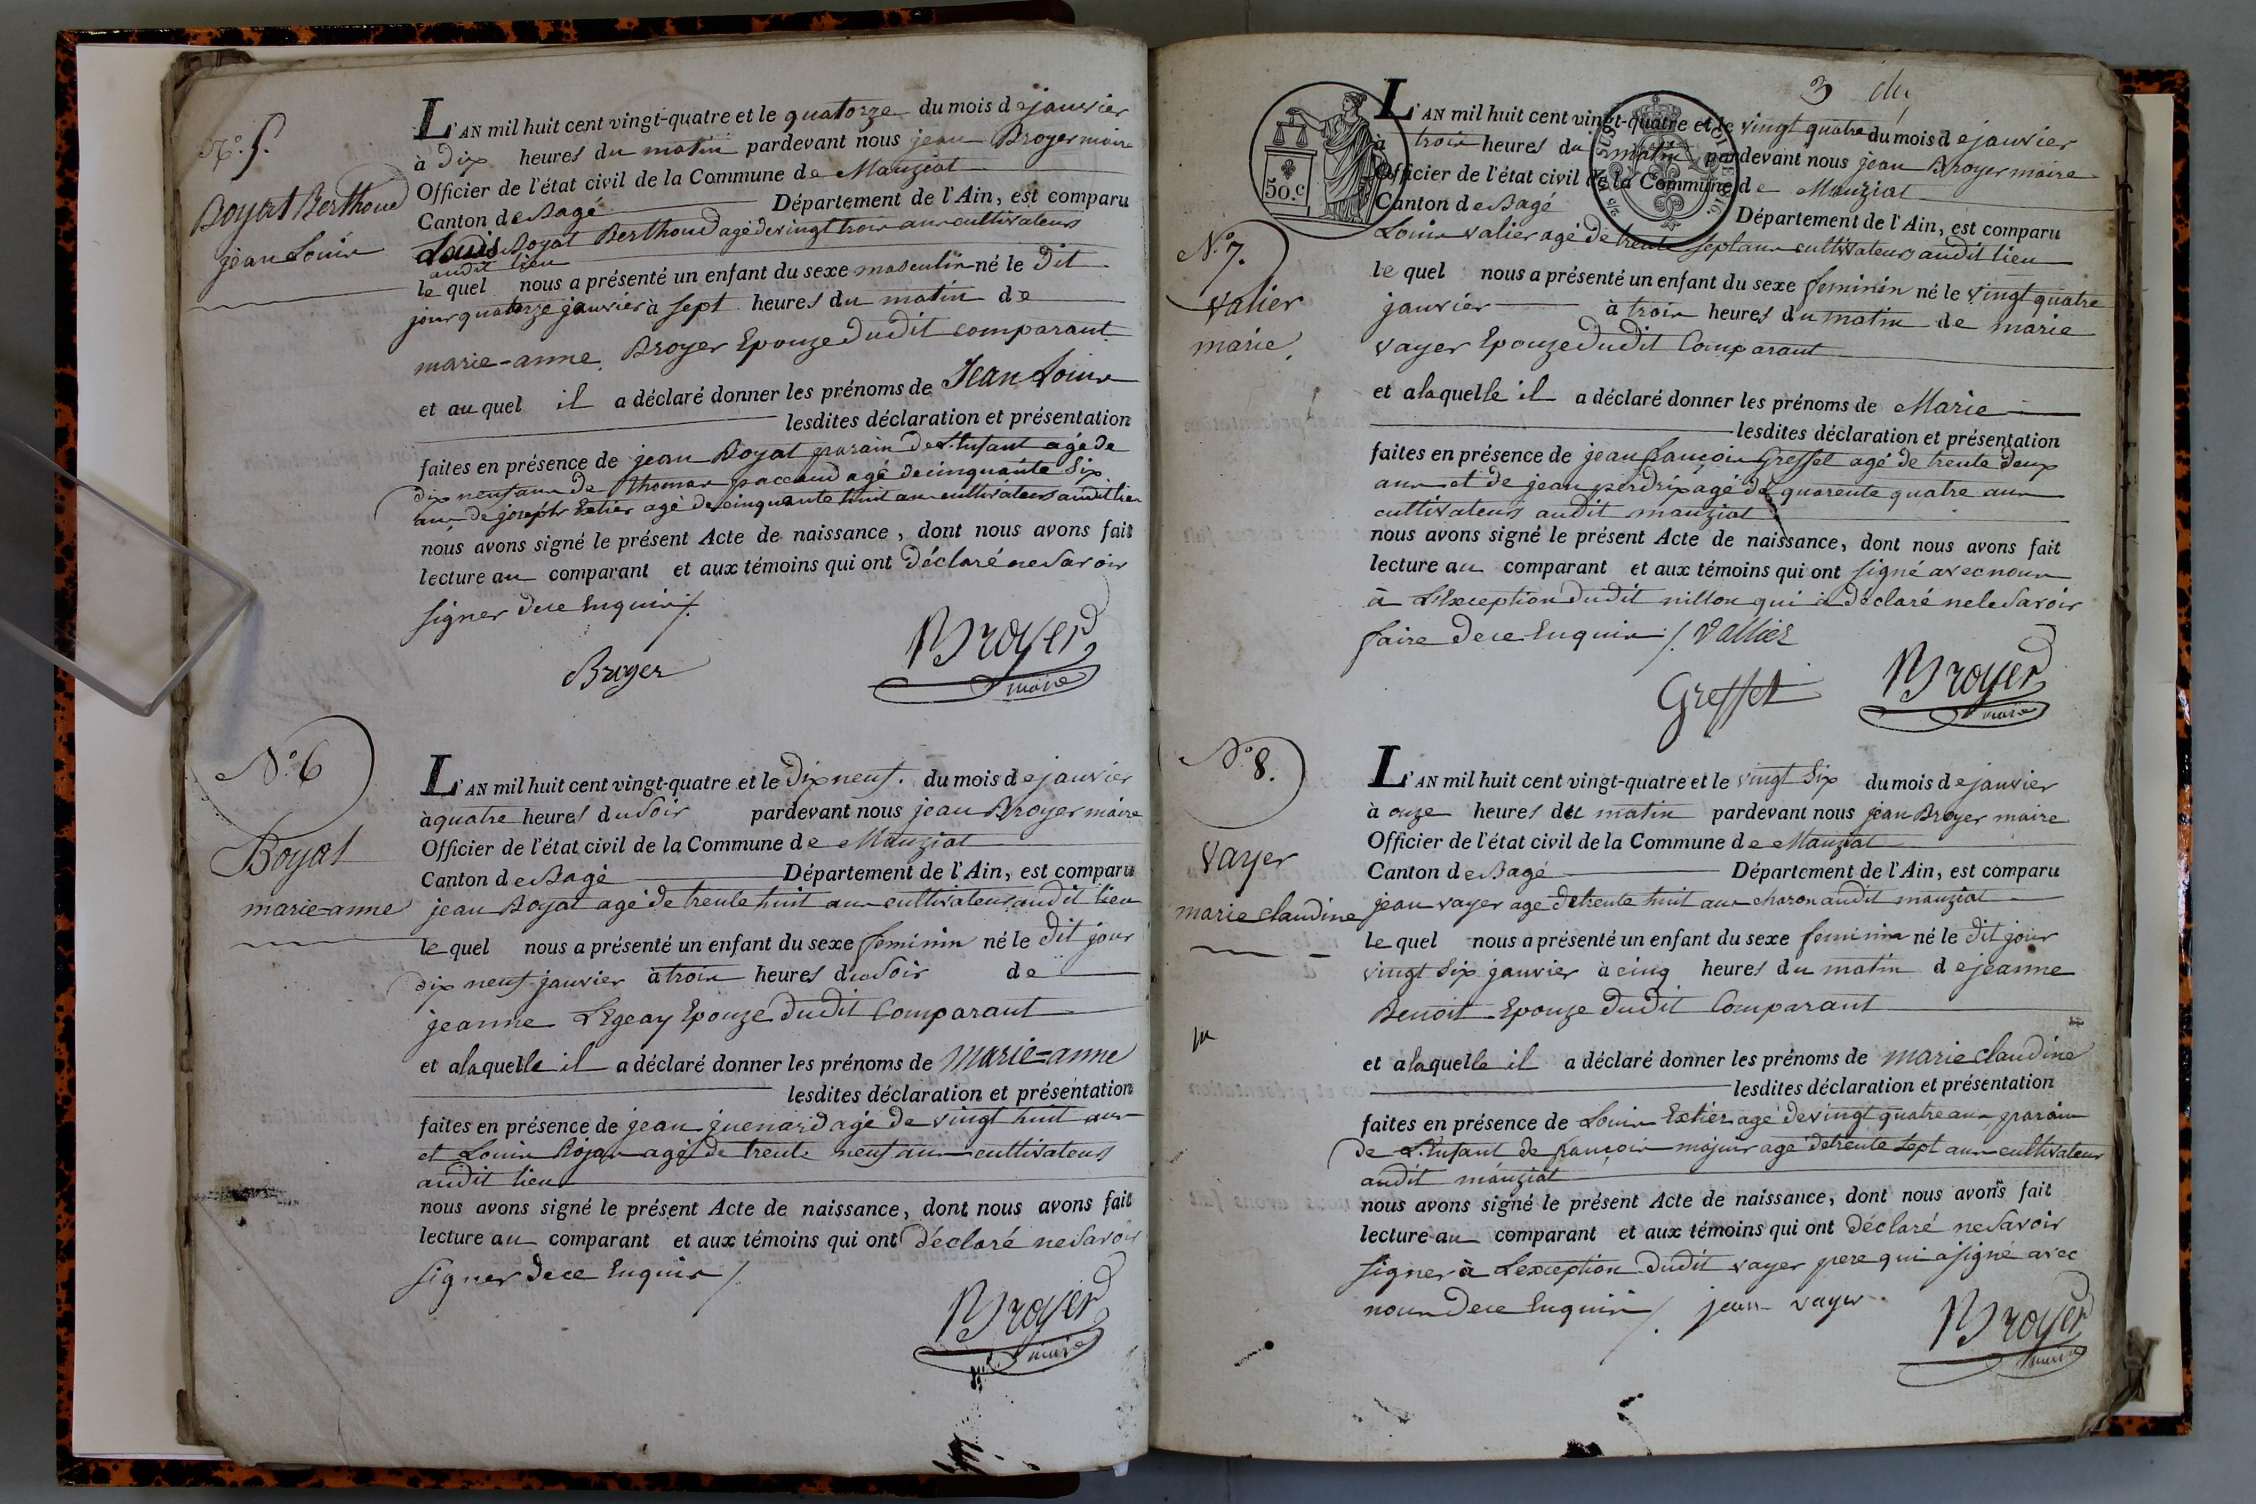 N.° 5.
Boyat Berthoud
jean Louis
L'AN mil huit cent vingt-quatre et le quatorze du mois de janvier
à dix heures du matin pardevant nous jean Broyer maire
Officier de l'état civil de la Commune de Manziat
Canton de Bagé Département de l'Ain, est comparu
Louis Boyat Berthoud agé de vingt trois ans cultivateurs
audit lieu
le quel nous a présenté un enfant du sexe masculin né le dit
jour quatorze janvier à sept heures du matin de
marie-anne Broyer Epouze dudit comparant
et au quel il a déclaré donner les prénoms de Jean Louis
lesdites déclaration et présentation
faites en présence de jean Boyat parain de L'Enfant agé de
dix neuf ans de thomas paccaud agé de cinquante six
ans de joseph Extier agé de cinquante huit ans cultivateurs audit lieu
nous avons signé le présent Acte de naissance, dont nous avons fait
lecture au comparant et aux témoins qui ont déclaré ne Savoir
signer de ce Enquis /.
Broyer
Broyer
maire
N.° 6
Boyat
marie=anne
L'AN mil huit cent vingt-quatre et le dix neuf. du mois de janvier
à quatre heures du Soir pardevant nous jean Broyer maire
Officier de l'état civil de la Commune de Manziat
Canton de Bagé Département de l'Ain, est comparu
jean Boyat agé de trente huit ans cultivateurs audit lieu
le quel nous a présenté un enfant du sexe feminin né le dit jour
dix neuf janvier à trois heures du Soir de
jeanne Legeay Epouze dudit Comparant
et a laquelle il a déclaré donner les prénoms de Marie=anne
lesdites déclaration et présentation
faites en présence de jean guenard agé de vingt huit ans
et Louis agé de trente neuf ans cultivateurs
audit lieu
nous avons signé le présent Acte de naissance, dont nous avons fait
lecture au comparant et aux témoins qui ont déclaré ne Savoir
signer de ce Enquis /.
Broyer
maire
3
50.c
L'AN mil huit cent vingt-quatre et le vingt quatre du mois de janvier
à trois heures du matin pardevant nous jean Broyer maire
Officier de l'état civil de la Commune de Manziat
Canton de Bagé Département de l'Ain, est comparu
N.° 7.
valier
marie
Louis valier agé de trente sept ans cultivateurs audit lieu
le quel nous a présenté un enfant du sexe feminin né le vingt quatre
janvier à trois heures du matin de marie
vayer Epouze dudit Comparant
et a laquelle il a déclaré donner les prénoms de Marie
lesdites déclaration et présentation
faites en présence de jean françois Greffet agé de trente deux
ans et de jean perdrix agé de quarente quatre ans
cultivateurs audit manziat
nous avons signé le présent Acte de naissance, dont nous avons fait
lecture au comparant et aux témoins qui ont signé avec nous
à L'Exception dudit nillon qui à déclaré ne le Savoir
faire de ce Enquis /. Vallier
Greffet
Broyer
maire
N.° 8.
vayer
marie claudine
L'AN mil huit cent vingt-quatre et le vingt Six du mois de janvier
à onze heures du matin pardevant nous jean Broyer maire
Officier de l'état civil de la Commune de Manziat
Canton de Bagé Département de l'Ain, est comparu
jean vayer agé de trente huit ans charon audit manziat
le quel nous a présenté un enfant du sexe feminin né le dit jour
vingt Six janvier à cinq heures du matin de jeanne
Benoit Epouze dudit Comparant
et a laquelle il a déclaré donner les prénoms de marie claudine
lesdites déclaration et présentation
faites en présence de Louis Extier agé de vingt quatre ans parain
de L'Enfant de françois agé de trente Sept ans cultivateurs
audit manziat
nous avons signé le présent Acte de naissance, dont nous avons fait
lecture au comparant et aux témoins qui ont déclaré ne Savoir
signer à L'exception dudit vayer pere qui a signé avec
nous de ce Enquis /. jean vayer
Broyer
maire